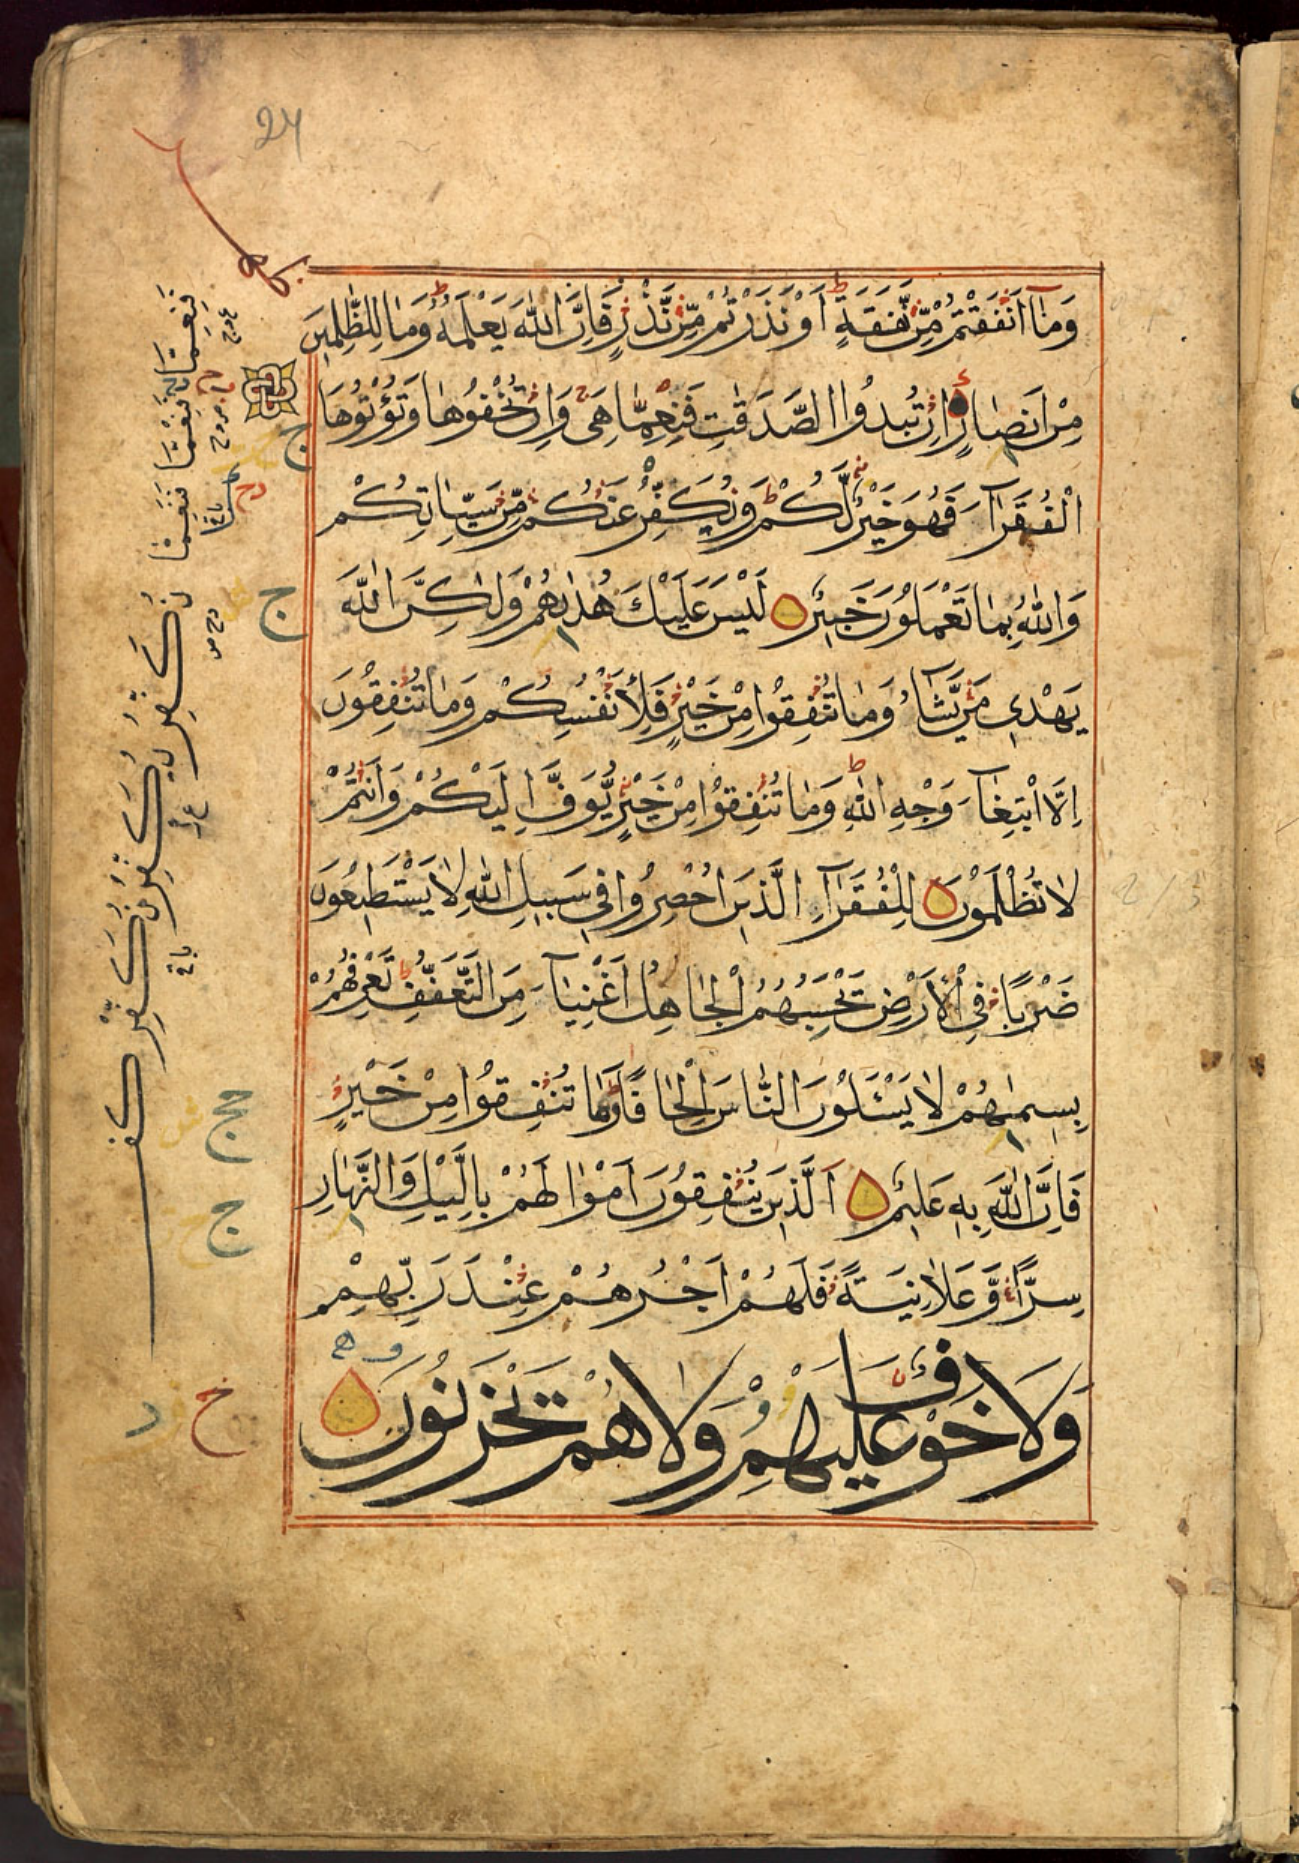 24
وَمَآ اَنْفَقْتُمْ مِّنْ نَّفَقَةٍ اَوْ نَذَرْتُمْ مِّنْ نَّذْرٍ فَاِنَّ اللّٰهَ يَعْلَمُهٗ وَمَا لِلظّٰلِمِيْنَ
مِنْ اَنْصَارٍ اِنْ تُبْدُوا الصَّدَقٰتِ فَنِعِمَّا هِىَ وَاِنْ تُخْفُوْهَا وَتُؤْتُوْهَا
الْفُقَرَآءَ فَهُوَ خَيْرٌ لَّكُمْ وَنُكَفِّرُ عَنْكُمْ مِّنْ سَيِّاٰتِكُمْ
وَاللّٰهُ بِمَا تَعْمَلُوْنَ خَبِيْرٌ لَيْسَ عَلَيْكَ هُدٰىهُمْ وَلٰكِنَّ اللّٰهَ
يَهْدِىْ مَنْ يَّشَآءُ وَمَا تُنْفِقُوْا مِنْ خَيْرٍ فَلِاَنْفُسِكُمْ وَمَا تُنْفِقُوْنَ
اِلَّا ابْتِغَآءَ وَجْهِ اللّٰهِ وَمَا تُنْفِقُوْا مِنْ خَيْرٍ يُّوَفَّ اِلَيْكُمْ وَاَنْتُمْ
لَا تُظْلَمُوْنَ لِلْفُقَرَآءِ الَّذِيْنَ اُحْصِرُوْا فِىْ سَبِيْلِ اللّٰهِ لَا يَسْتَطِيْعُوْنَ
ضَرْبًا فِى الْاَرْضِ يَحْسَبُهُمُ الْجَاهِلُ اَغْنِيَآءَ مِنَ التَّعَفُّفِ تَعْرِفُهُمْ
بِسِيْمٰىهُمْ لَا يَسْئَلُوْنَ النَّاسَ اِلْحَافًا وَمَا تُنْفِقُوْا مِنْ خَيْرٍ
فَاِنَّ اللّٰهَ بِهٖ عَلِيْمٌ اَلَّذِيْنَ يُنْفِقُوْنَ اَمْوَالَهُمْ بِالَّيْلِ وَالنَّهَارِ
سِرًّا وَّعَلَانِيَةً فَلَهُمْ اَجْرُهُمْ عِنْدَ رَبِّهِمْ
وَلَا خَوْفٌ عَلَيْهِمْ وَلَا هُمْ يَحْزَنُوْنَ
فَنِعِمَّا فَنِعْمَّا فَنَعِمَّا
نُكَفِّرْ يُكَفِّرُ نُكَفِّرُ